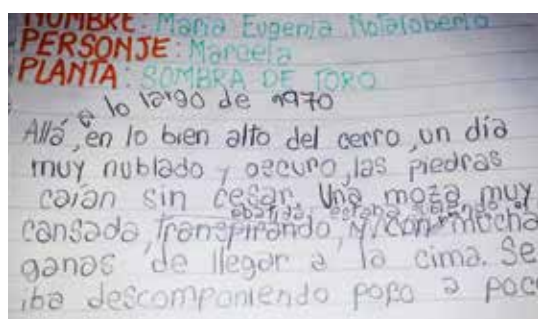 NOMBRE: Maria Eugenia Notaroberto
PERSONJE: Marcela
PLANTA: SOMBRA DE TORO
a lo largo de 1970
Allá, en lo bien alto del cerro, un día
muy nublado y oscuro, las piedras
caían sin cesar. Una moza, muy
cansada, transpirando, y con mucha
ganas de llegar a la cima. Se
iba descomponiendo popo a poco